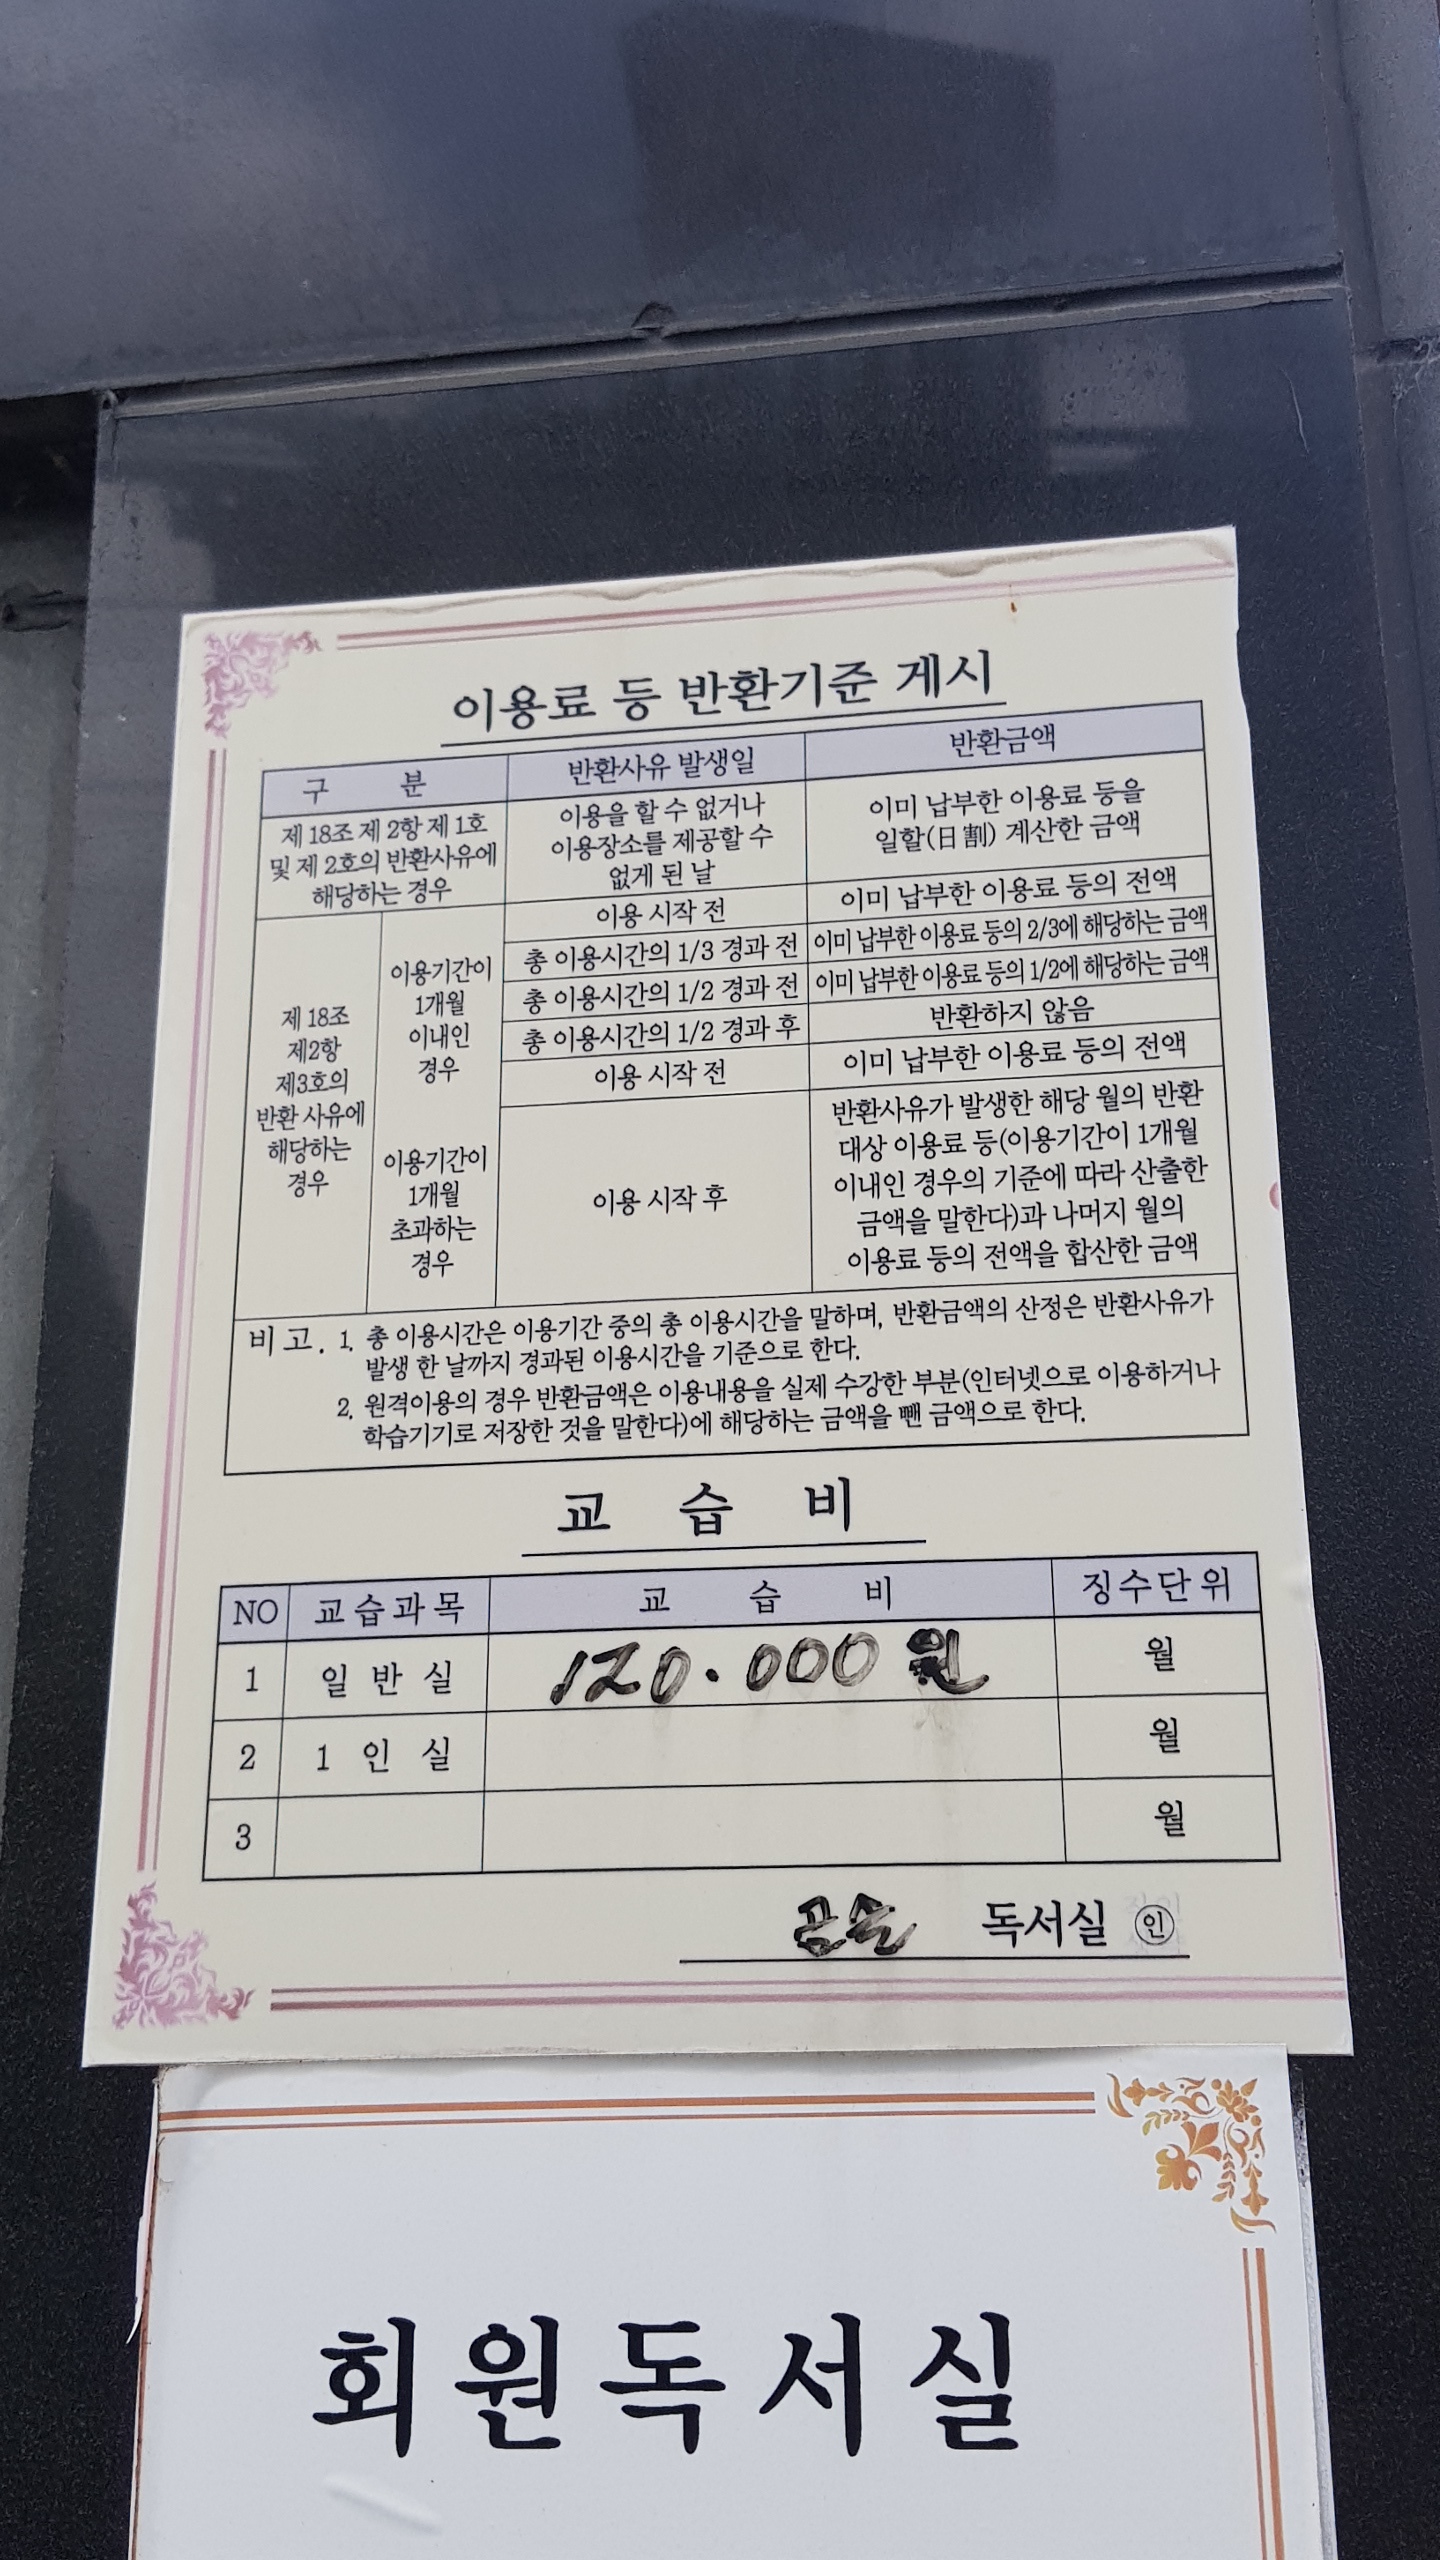 이용료 등 반환기준 게시
구 분 반환사유 발생일 반환금액
제 18조 제 2항 제 1호
및 제 2호의 반환사유에
해당하는 경우
이용을 할 수 없거나
이용장소를 제공할 수
없게 된 날
이미 납부한 이용료 등을
일할(日割) 계산한 금액
제 18조
제2항
제3호의
반환 사유에
해당하는
경우
이용기간이
1개월
이내인
경우
이용 시작 전 이미 납부한 이용료 등의 전액
총 이용시간의 1/3 경과 전 이미 납부한 이용료 등의 2/3에 해당하는 금액
총 이용시간의 1/2 경과 전 이미 납부한 이용료 등의 1/2에 해당하는 금액
총 이용시간의 1/2 경과 후 반환하지 않음
이용기간이
1개월
초과하는
경우
이용 시작 전 이미 납부한 이용료 등의 전액
이용 시작 후
반환사유가 발생한 해당 월의 반환
대상 이용료 등(이용기간이 1개월
이내인 경우의 기준에 따라 산출한
금액을 말한다)과 나머지 월의
이용료 등의 전액을 합산한 금액
비 고. 1. 총 이용시간은 이용기간 중의 총 이용시간을 말하며, 반환금액의 산정은 반환사유가
발생 한 날까지 경과된 이용시간을 기준으로 한다.
2. 원격이용의 경우 반환금액은 이용내용을 실제 수강한 부분(인터넷으로 이용하거나
학습기기로 저장한 것을 말한다)에 해당하는 금액을 뺀 금액으로 한다.
교 습 비
NO 교습과목 교 습 비 징수단위
1 일 반 실 120.000원 월
2 1 인 실 월
3 월
독서실 인
회원독서실